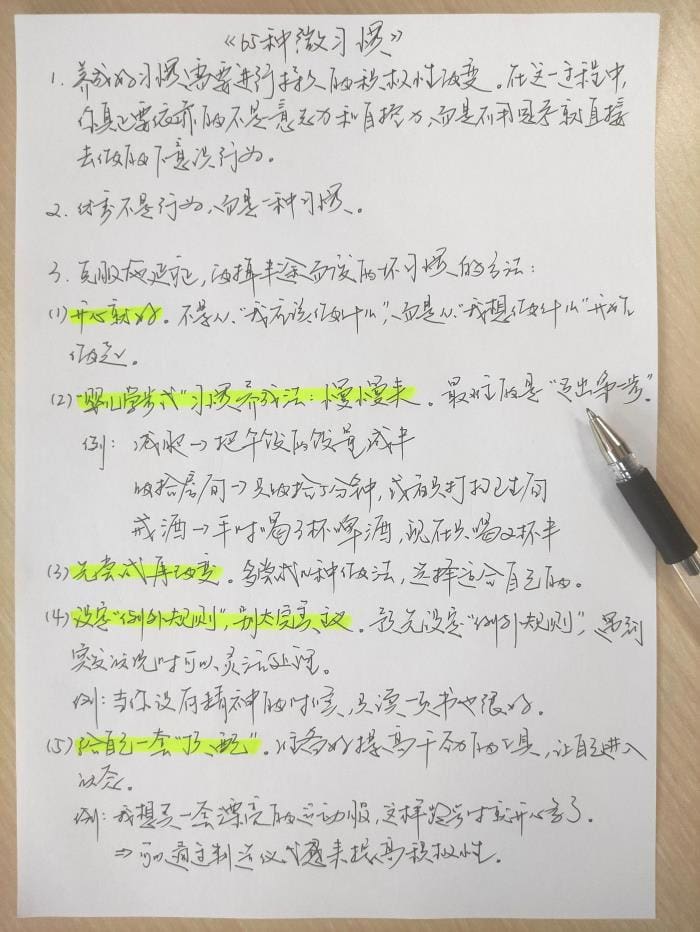 《65种微习惯》
1. 养成好习惯需要进行持久的积极性改变。在这一过程中,
你真正要依靠的不是意志力和自控力,而是不用思考就直接
去做的下意识行为。
2. 优秀不是行为,而是一种习惯。
3. 克服拖延症,改掉半途而废的坏习惯的方法:
(1) 开心就好。不是从“我应该做什么”,而是从“我想做什么”开始
做起。
(2) “婴儿学步式”习惯养成法:慢慢来。最难的是“迈出第一步”。
例:减肥→把午饭的饭量减半
收拾房间→只收拾5分钟,或者只打扫卫生间
戒酒→平时喝3杯啤酒,现在只喝2杯半
(3) 先尝试再改变。多尝试几种做法,选择适合自己的。
(4) 设定“例外规则”,别太完美主义。预先设定“例外规则”,遇到
突发状况时可以灵活处理。
例:当你没有精神的时候,只读一页书也很好。
(5) 给自己一套“顶配”。准备好提高干劲的工具,让自己进入
状态。
例:我想买一套漂亮的运动服,这样跑步时就开心多了。
⇒可以通过制造仪式感来提高积极性。